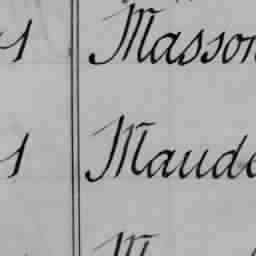 1 Masson
1 Maude